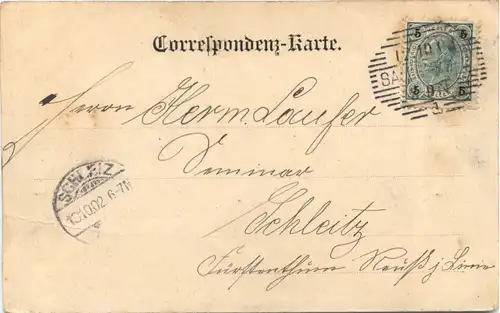 Correspondenz-Karte.
5 5
5 5
Herrn Herm. Laufer
Seminar
Schleitz
Fürstenthum Reuß j. Linie
SCHLEIZ
02 6-7N